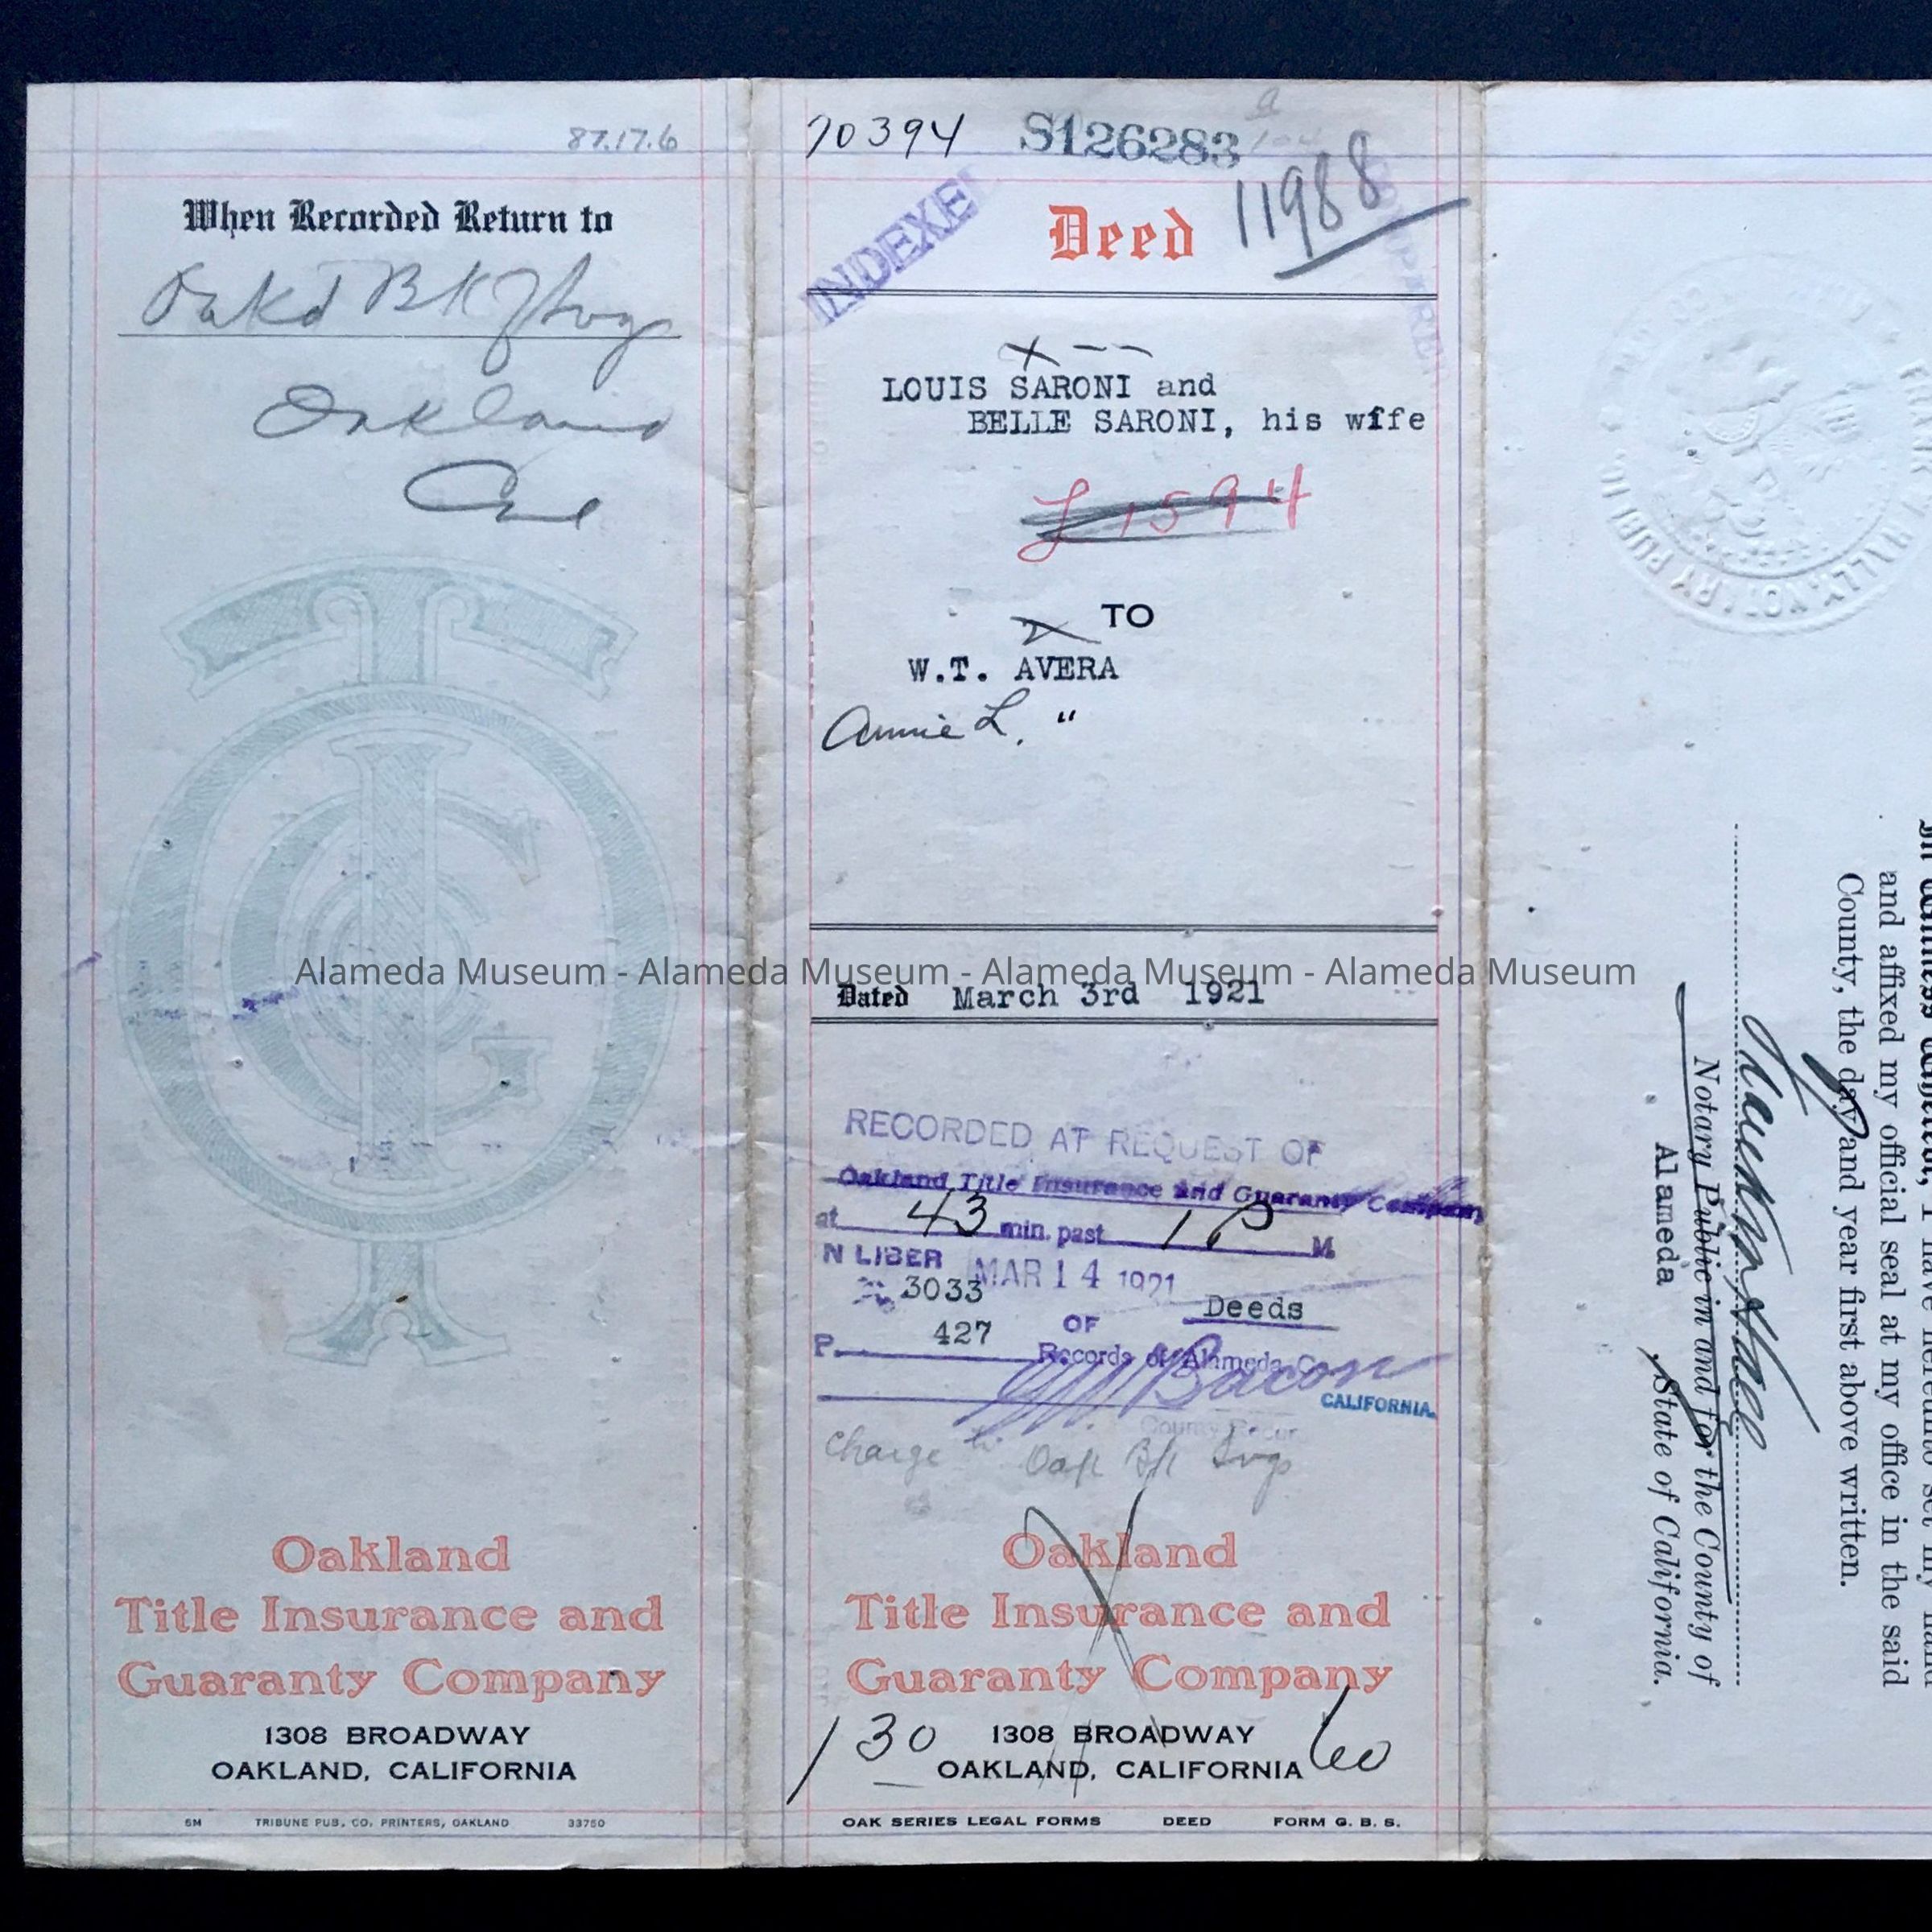 87.17.6
When Recorded Return to
Oakd Bk Svgs
Oakland
Cal
Oakland
Title Insurance and
Guaranty Company
1308 BROADWAY
OAKLAND, CALIFORNIA
5M TRIBUNE PUB. CO. PRINTERS, OAKLAND 33750
70394 S126283
INDEXE
Deed 11988
COMPARE
LOUIS SARONI and
BELLE SARONI, his wife
L 1594
TO
W.T. AVERA
Annie L. "
Alameda Museum - Alameda Museum - Alameda Museum - Alameda Museum
Dated March 3rd 1921
RECORDED AT REQUEST OF
Oakland Title Insurance and Guaranty Company
at 43 min. past 1 P M
N LIBER MAR 14 1921
3033 Deeds
427 OF
P. Records of Alameda Co
Bacon
CALIFORNIA.
County Recor
Charge to Oak Bk Svgs
Oakland
Title Insurance and
Guaranty Company
130 1308 BROADWAY 60
OAKLAND, CALIFORNIA
OAK SERIES LEGAL FORMS DEED FORM G. B. S.
NOTARY PUBLIC
and affixed my official seal at my office in the said
County, the day and year first above written.
Notary Public in and for the County of
Alameda , State of California.